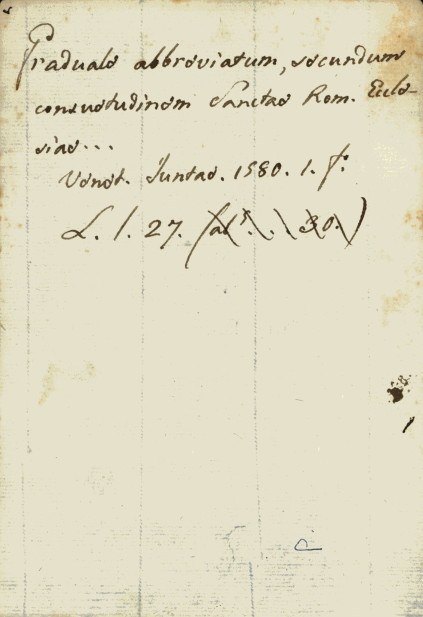 Graduale abbreviatum, secundum
consuetudinem Sanctae Rom. Eccle-
siae...
Venet. Juntae. 1580. 1. f°.
L. l. 27.
30.)